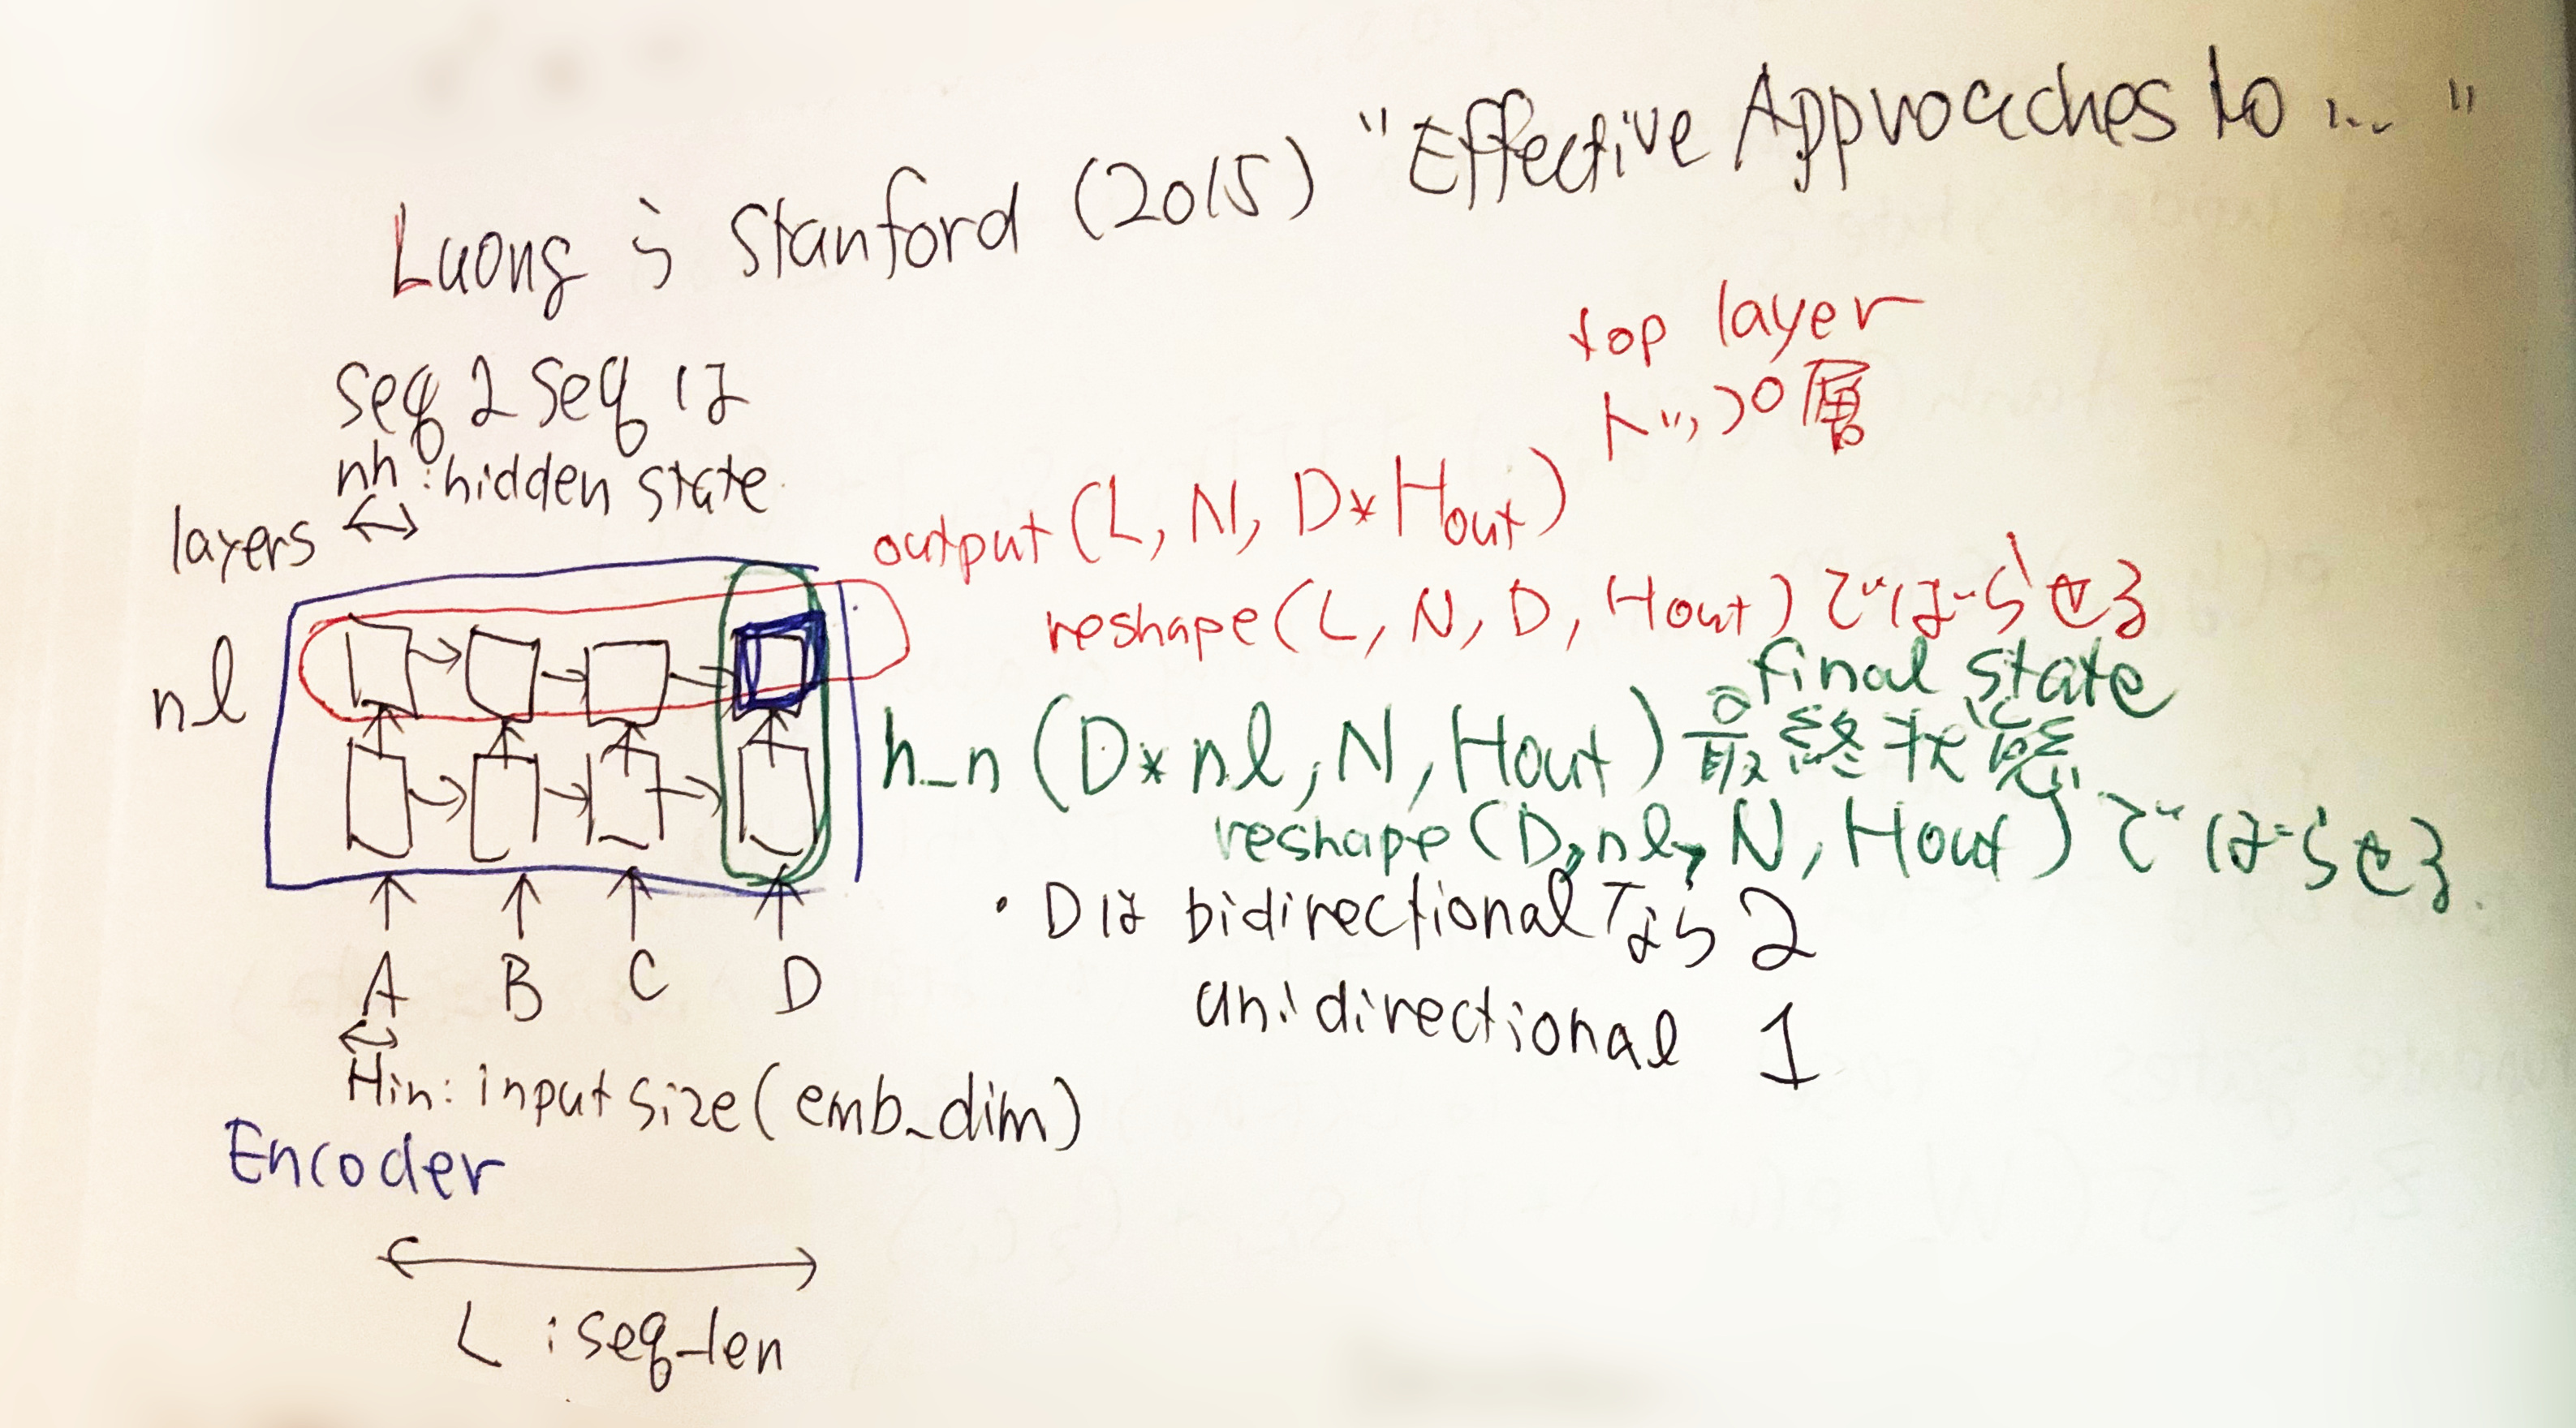 Luong ら Stanford (2015) "Effective Approaches to ... "
seq 2 seq は
nh : hidden state
layers
top layer
トップ層
output (L, N, D*Hout)
reshape (L, N, D, Hout) でばらせる
nl
final state
h_n (D*nl, N, Hout) 最終状態
reshape (D, nl, N, Hout) でばらせる
・Dは bidirectional なら 2
unidirectional 1
A B C D
Hin: input size (emb_dim)
Encoder
L : seq_len